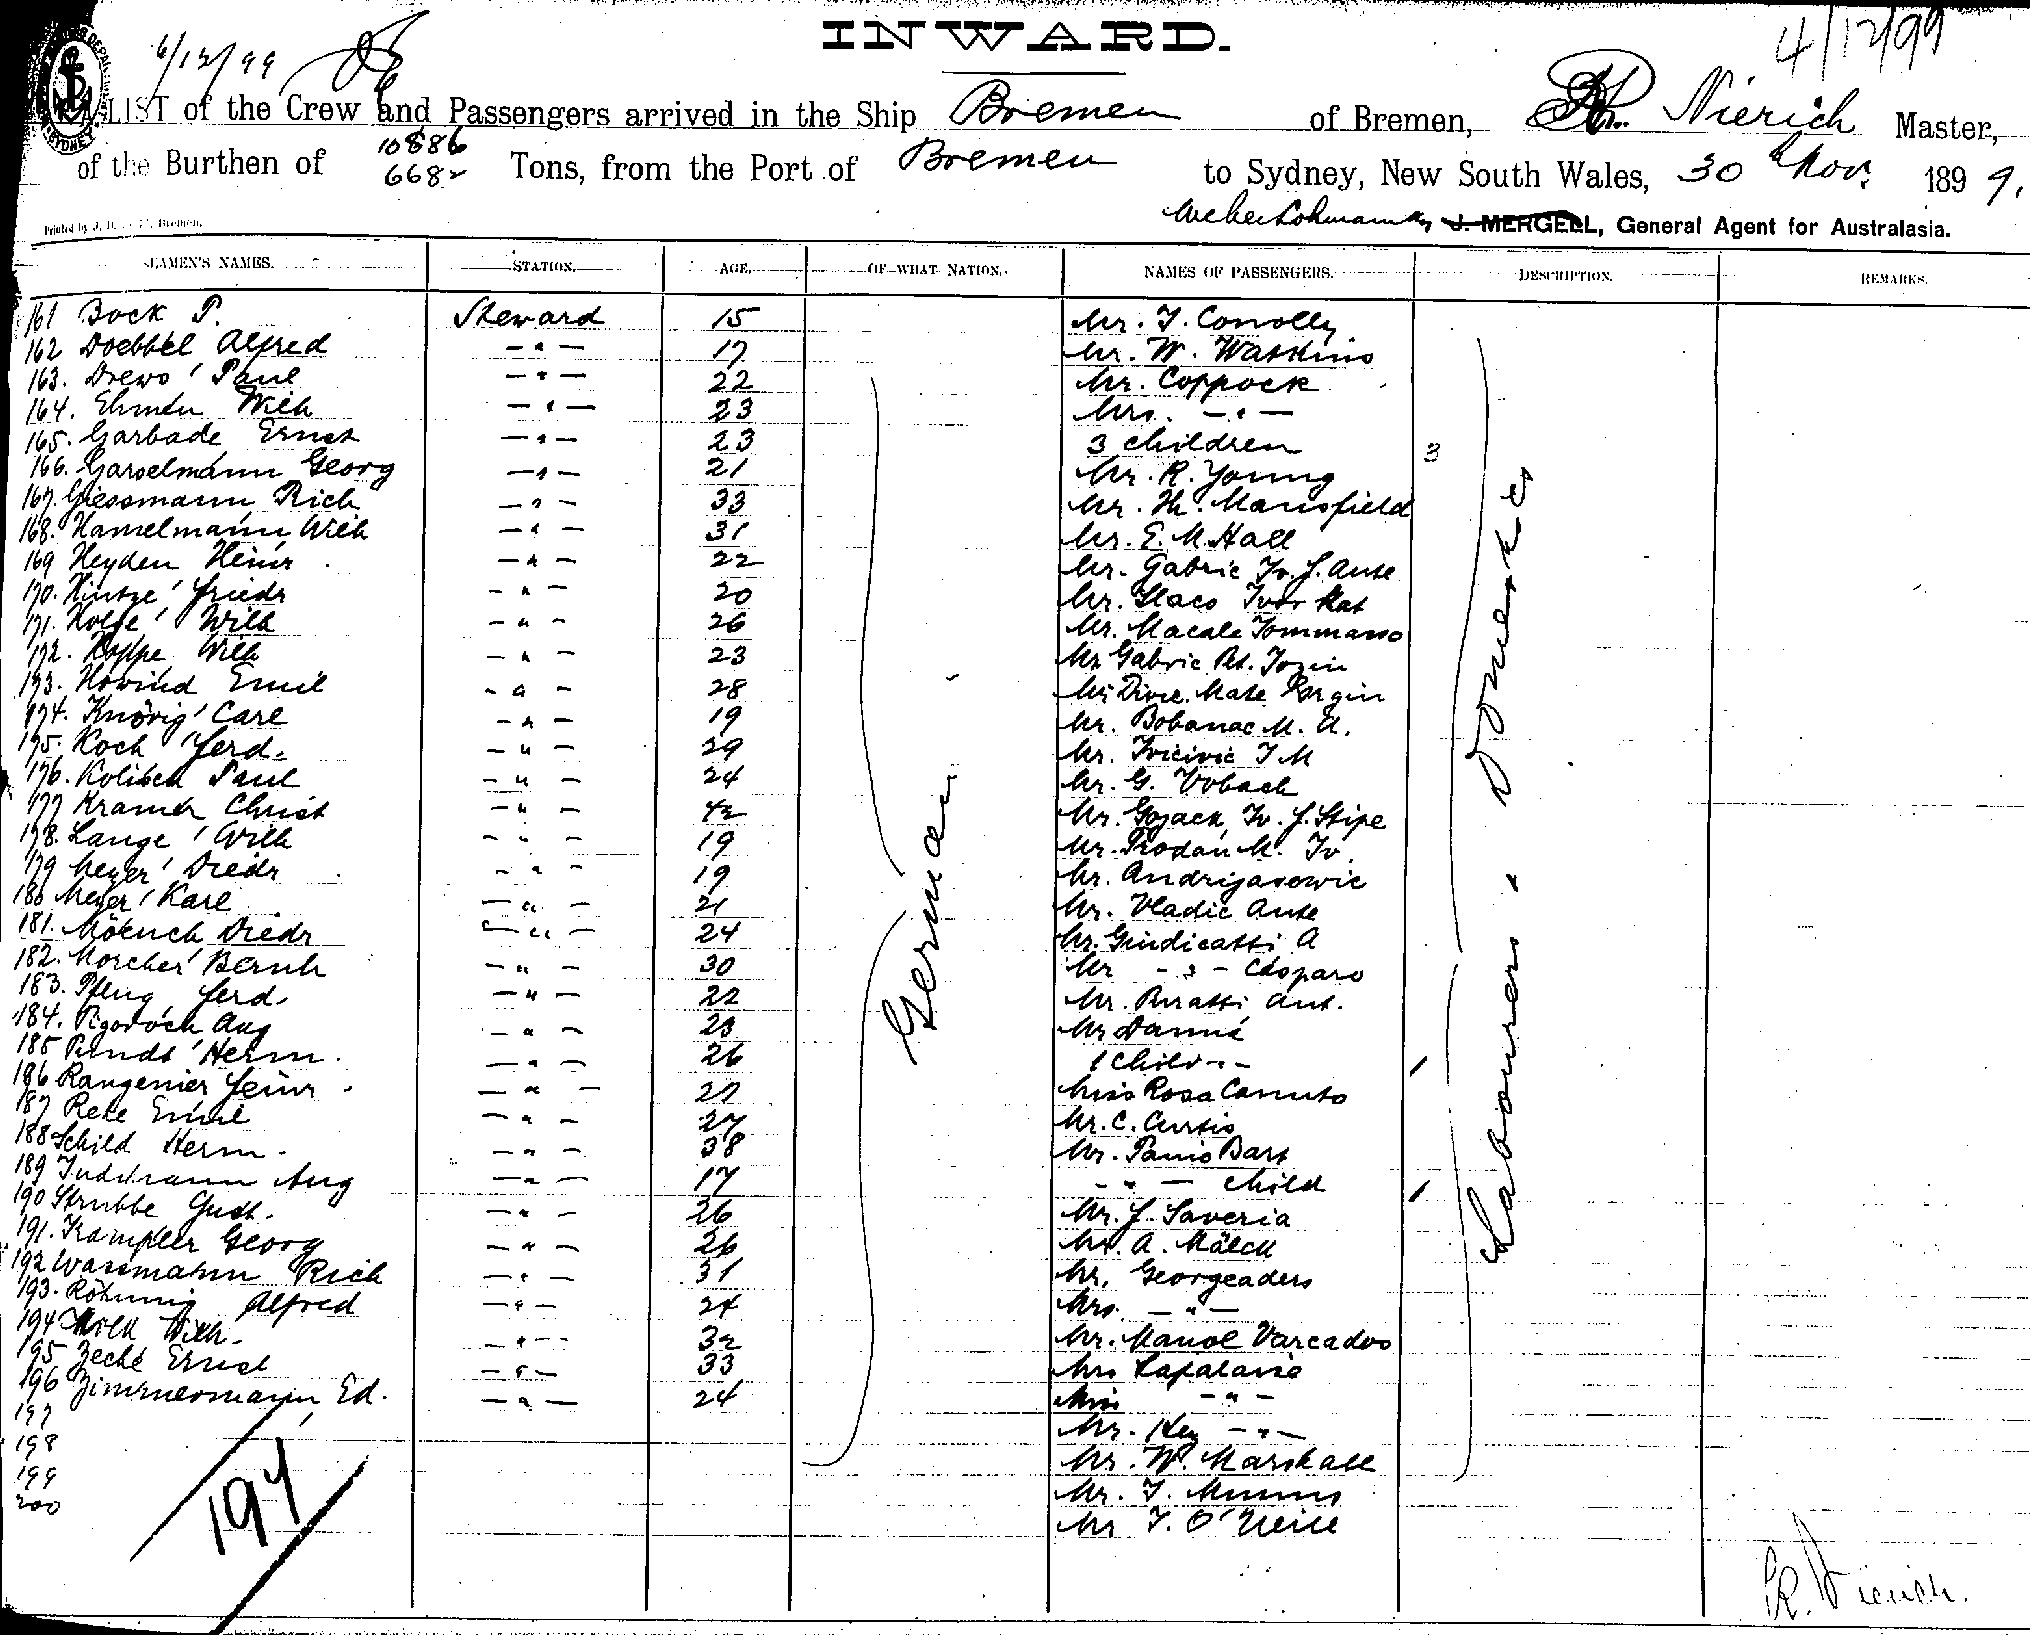 INWARD.
6/12/99
4/12/99
LIST of the Crew and Passengers arrived in the Ship Bremen of Bremen, R. Nierich Master,
of the Burthen of 10886 6682 Tons, from the Port of Bremen to Sydney, New South Wales, 30th Nov. 1899.
J. MERGELL, General Agent for Australasia.
SEAMEN'S NAMES. STATION. AGE. OF WHAT NATION. NAMES OF PASSENGERS. DESCRIPTION. REMARKS.
161 Bock P. Steward 15 Mr. T. Conolly
162 Doebbel Alfred -"- 17 Mr. W. Watkins
163. Drews Paul -"- 22 Mr. Coppock
164. Ehmen Wilh -"- 23 Mrs. -"-
165. Garbade Ernst -"- 23 3 children 3
166. Garselmann Georg -"- 21 Mr. R. Young
167. Giessmann Rich -"- 33 Mr. H. Mansfield
168. Hamelmann Wilh -"- 31 Mr. E. M. Hall
169 Heyden Heinr -"- 22 Mr. Gabric Iv. J. Ante
170. Hintze Friedr -"- 20 Mr. Ivor Mat
171. Holje Wilh -"- 26 Mr. Macale Tommaso
172. Hoppe Wilh -"- 23 Mr Gabric Pet. Jozin
173. Howind Emil -"- 28 Mr Divic Mate Grgin
174. Knörig Carl -"- 19 Mr. Bobanac M. A.
175. Koch Ferd. -"- 29 Mr. Ivicivic I M
176. Kolbach Paul -"- 24 Mr. G. Vobach
177 Kramer Christ -"- 42 Mr. Gojack Iv. J. Stipe
178. Lange Wilh -"- 19 Mr. Prodan M. Iv.
179 Meyer Diedr -"- 19 Mr. Andrijasowic
180 Meyer Karl -"- 21 Mr. Vladic Ante
181. Mönch Diedr -"- 24 Mr. Giudicatti A
182. Morcher Bernh -"- 30 Mr -"-
183. Pflug Ferd. -"- 22 Mr. Buratti Ant.
184. Aug -"- 23 Mr Danné
185 Herm. -"- 26 1 Child -"- 1
186 Rangenier Heinr -"- 27 Miss Rosa Canuto
187 Rele Emil -"- 27 Mr. C. Curtis
188 Schild Herm. -"- 38 Mr. Panio Bart
189 Aug -"- 17 -"- child 1
190 Strubbe Gust. -"- 26 Mr. J. Saveria
191. Trampler Georg -"- 26 Mr. A. Mälck
192 Wassmann Rich -"- 31 Mr. Georgeaders
193. Röhmig Alfred -"- 24 Mrs. -"-
194 Wilh. -"- 32 Mr. Manol Varcados
195 Zeche Ernst -"- 33 Mrs
196 Zimmermann Ed. -"- 24 Miss -"-
197 Mr. -"-
198 Mr. W. Marshall
199 Mr. T. Munns
200 Mr T. O'Neill
194
German
Labourers & Domestics
R. Nierich.